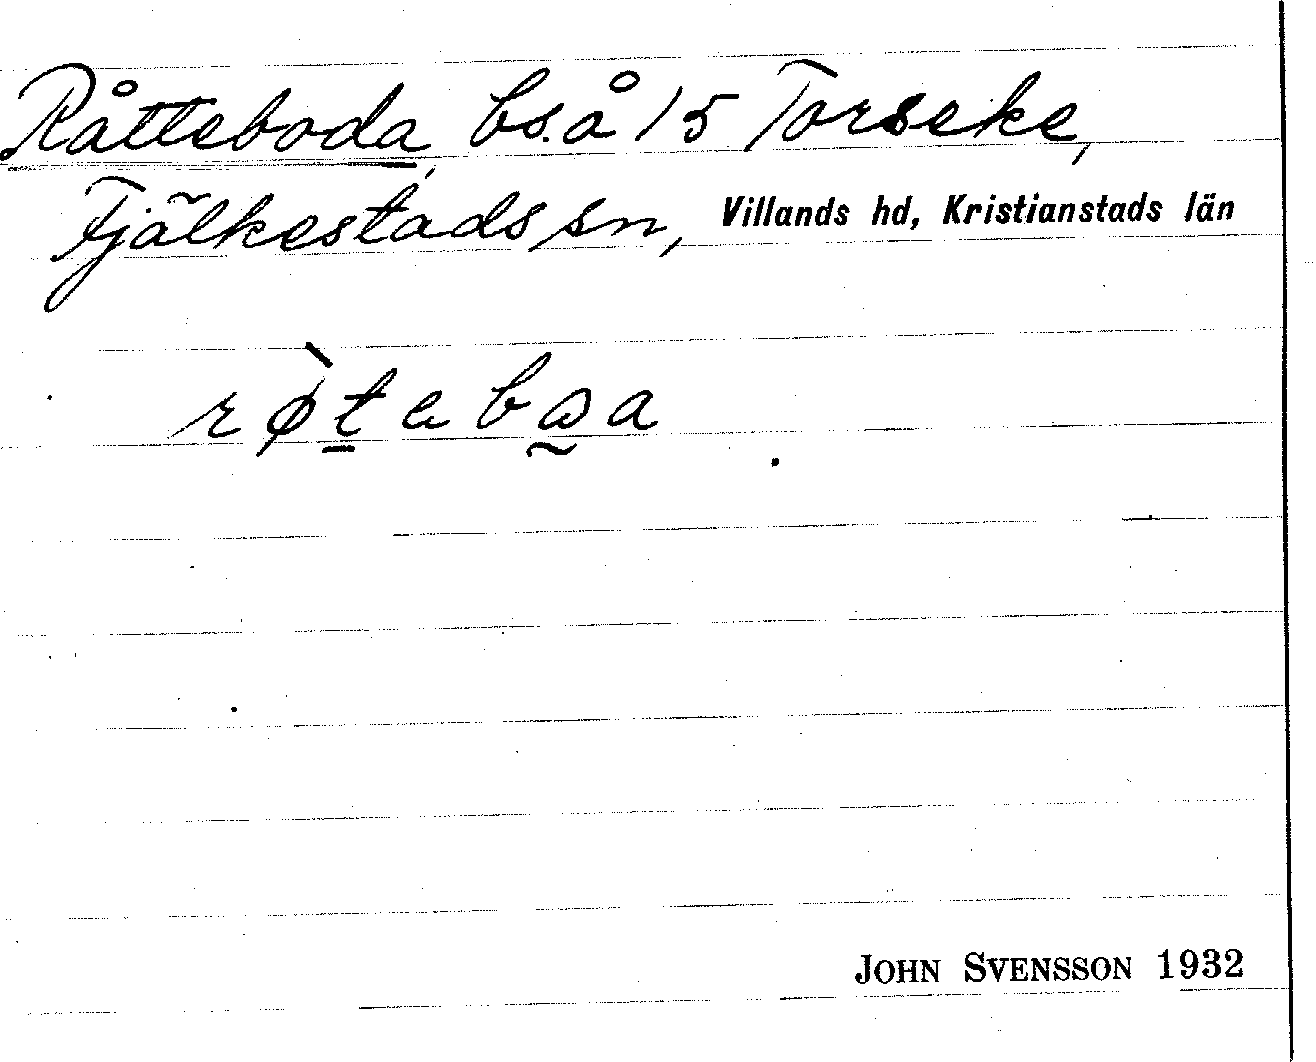 Råtteboda, bs. å 15 Torseke,
Fjälkestads sn, Villands hd, Kristianstads län
JOHN SVENSSON 1932